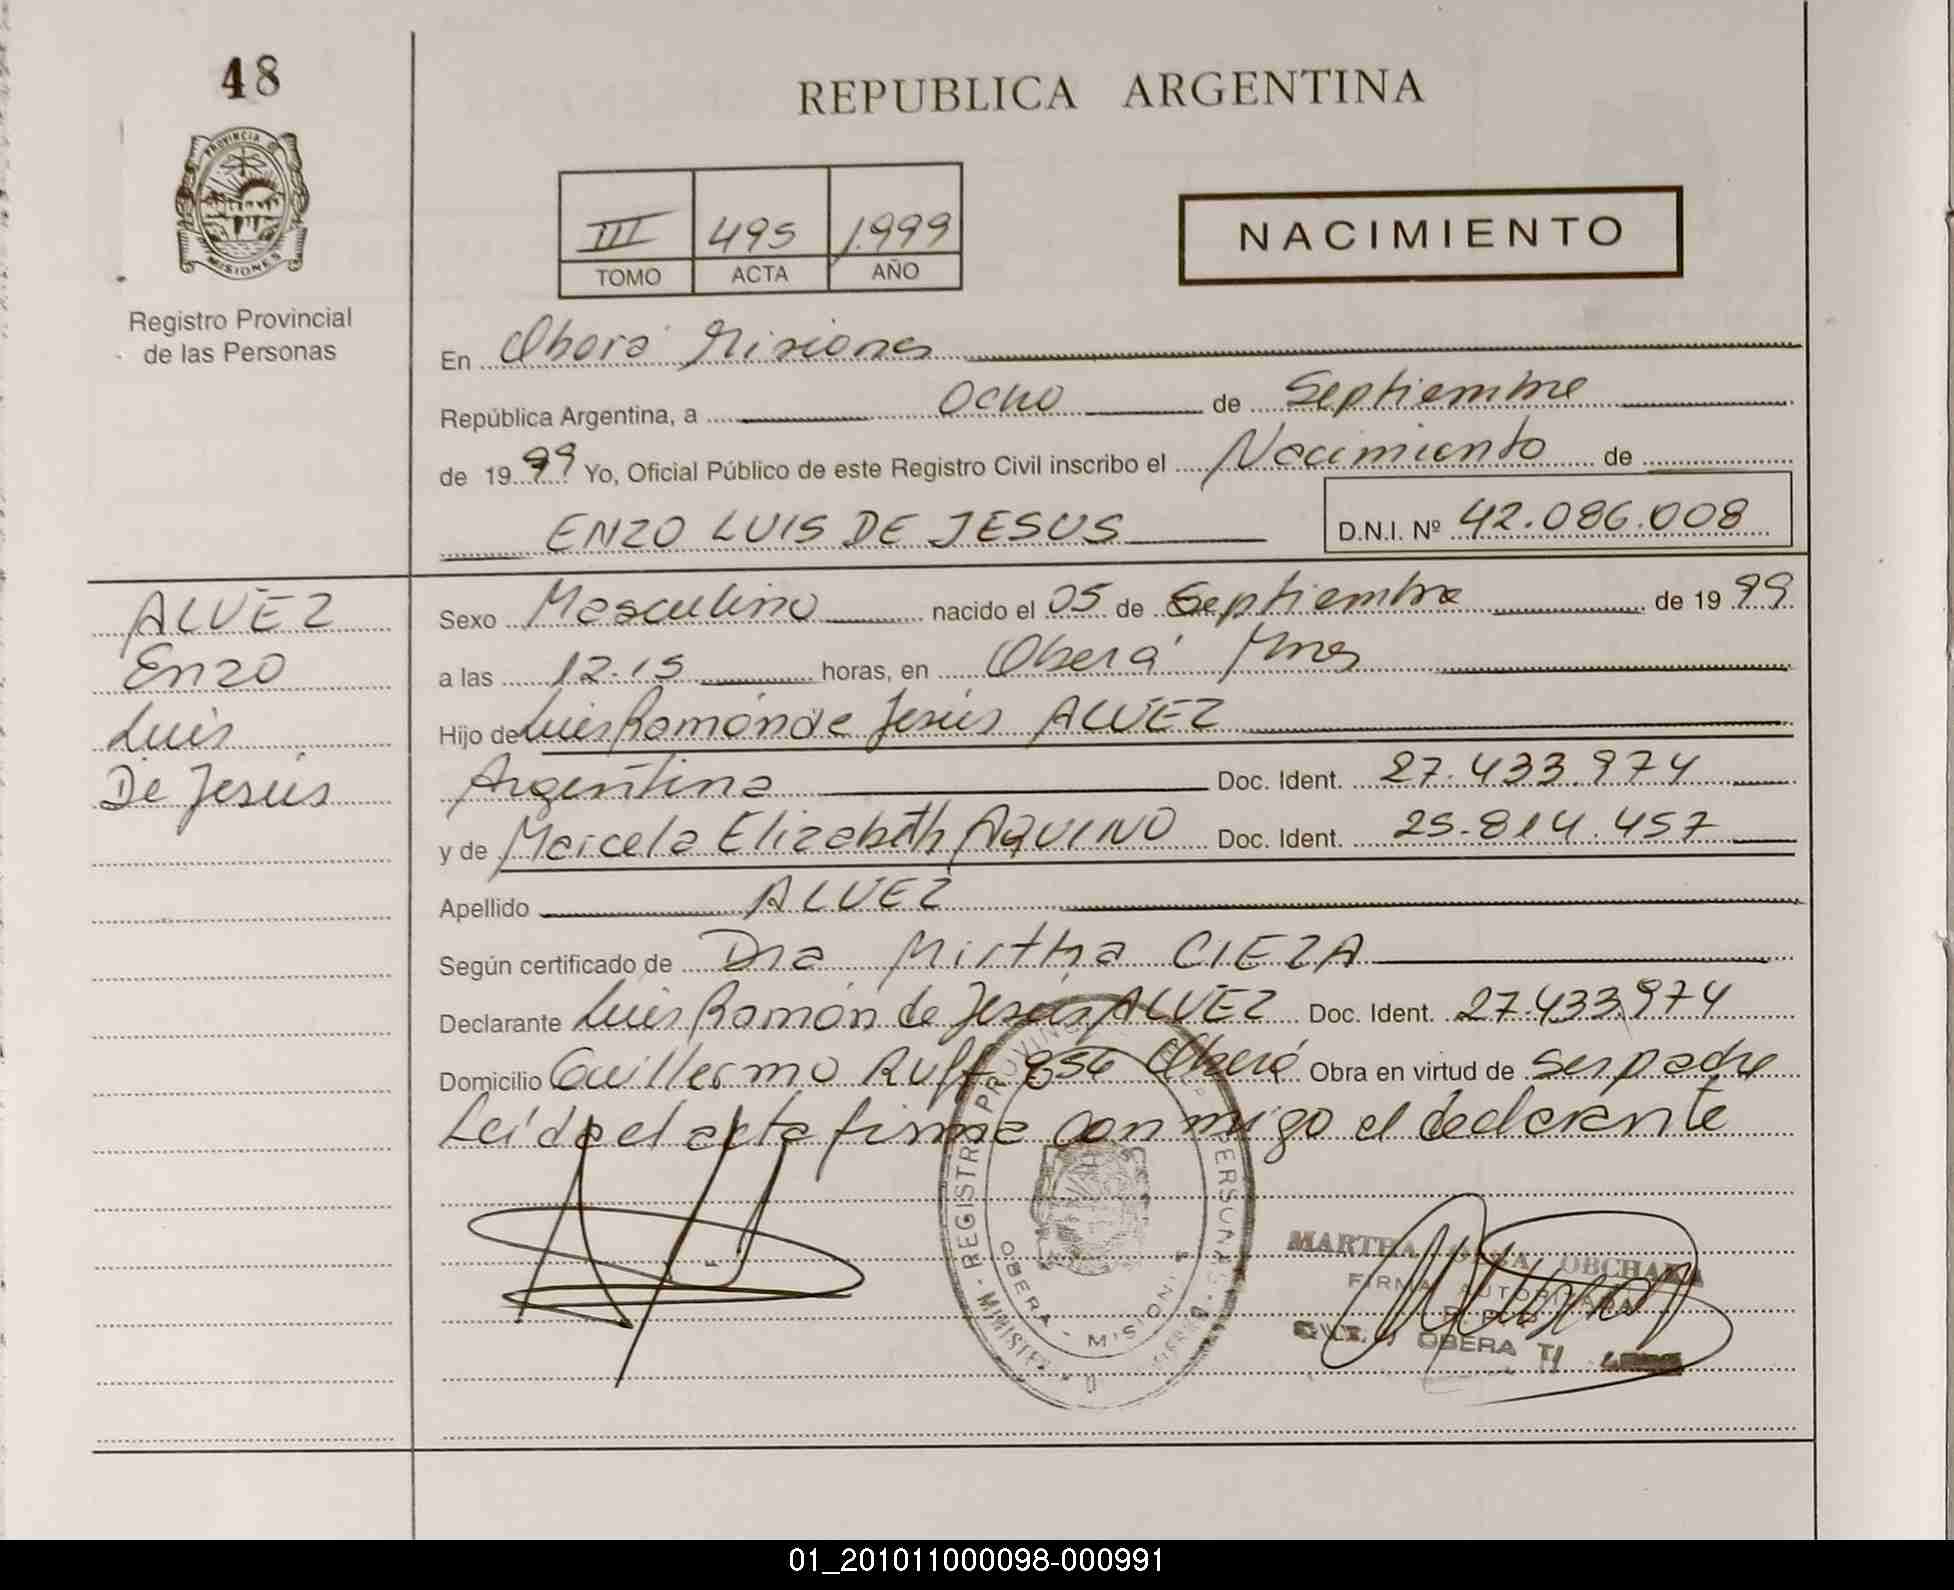 48
PROVINCIA DE
MISIONES
Registro Provincial
de las Personas
REPUBLICA ARGENTINA
III 495 1.999
TOMO ACTA AÑO
NACIMIENTO
En Oberá Misiones
República Argentina, a Ocho de Septiembre
de 1999 Yo, Oficial Público de este Registro Civil inscribo el Nacimiento de
ENZO LUIS DE JESUS D.N.I. Nº 42.086.008
ALVEZ
Enzo
Luis
De Jesús
Sexo Masculino nacido el 05 de Septiembre de 1999
a las 12.15 horas, en Oberá Mnes
Hijo de Luis Ramón de Jesús ALVEZ
Argentina Doc. Ident. 27.433.974
y de Marcela Elizabeth AQUINO Doc. Ident. 25.814.457
Apellido ALVEZ
Según certificado de Dra Mirtha CIEZA
Declarante Luis Ramón de Jesús ALVEZ Doc. Ident. 27.433.974
Domicilio Guillermo Ruff 856 Oberá Obra en virtud de ser padre
Leída el acta firma conmigo el declarante
REGISTRO PROVINCIAL PERSONAS
OBERA - MISIONES
MARTHA OBCHANA
FIRMA AUTORIZADA
OBERA
01_201011000098-000991